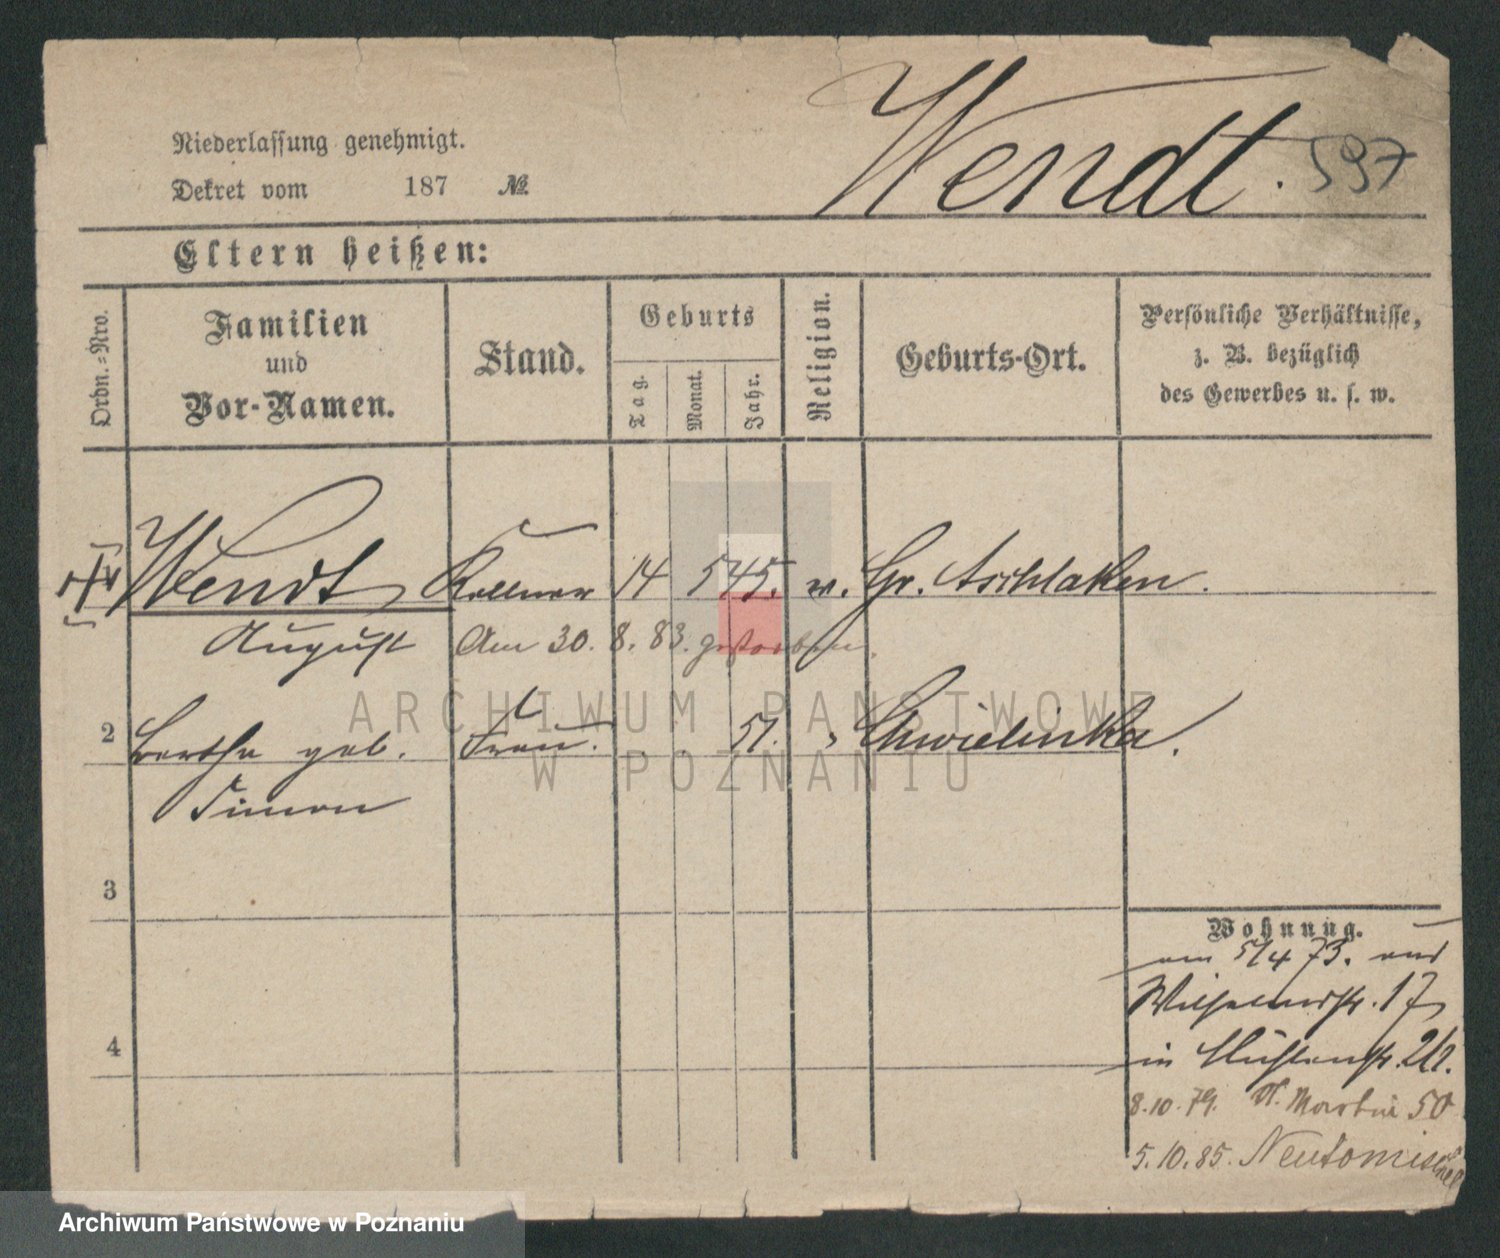 Wendt. 597
Niederlassung genehmigt.
Dekret vom 187 №
Eltern heißen:
Ordn.=Nro.
Familien
und
Vor-Namen.
Stand.
Geburts
Tag.
Monat.
Jahr.
Religion.
Geburts-Ort.
Persönliche Verhältnisse,
z. B. bezüglich
des Gewerbes u. s. w.
Wendt Kellner 14 5 45. ev. Gr. Aschlaken.
August Am 30. 8. 83. gestorben.
2 Bertha geb. Frau. 51. " Chwielinka.
Simon
3
4
Wohnung.
am 5/4 73. aus
Wilhelmstr. 17
in Mühlenstr.
8.10.79. St. Martin 50
5.10.85. Neutomischel
ARCHIWUM PAŃSTWOWE
W POZNANIU
Archiwum Państwowe w Poznaniu